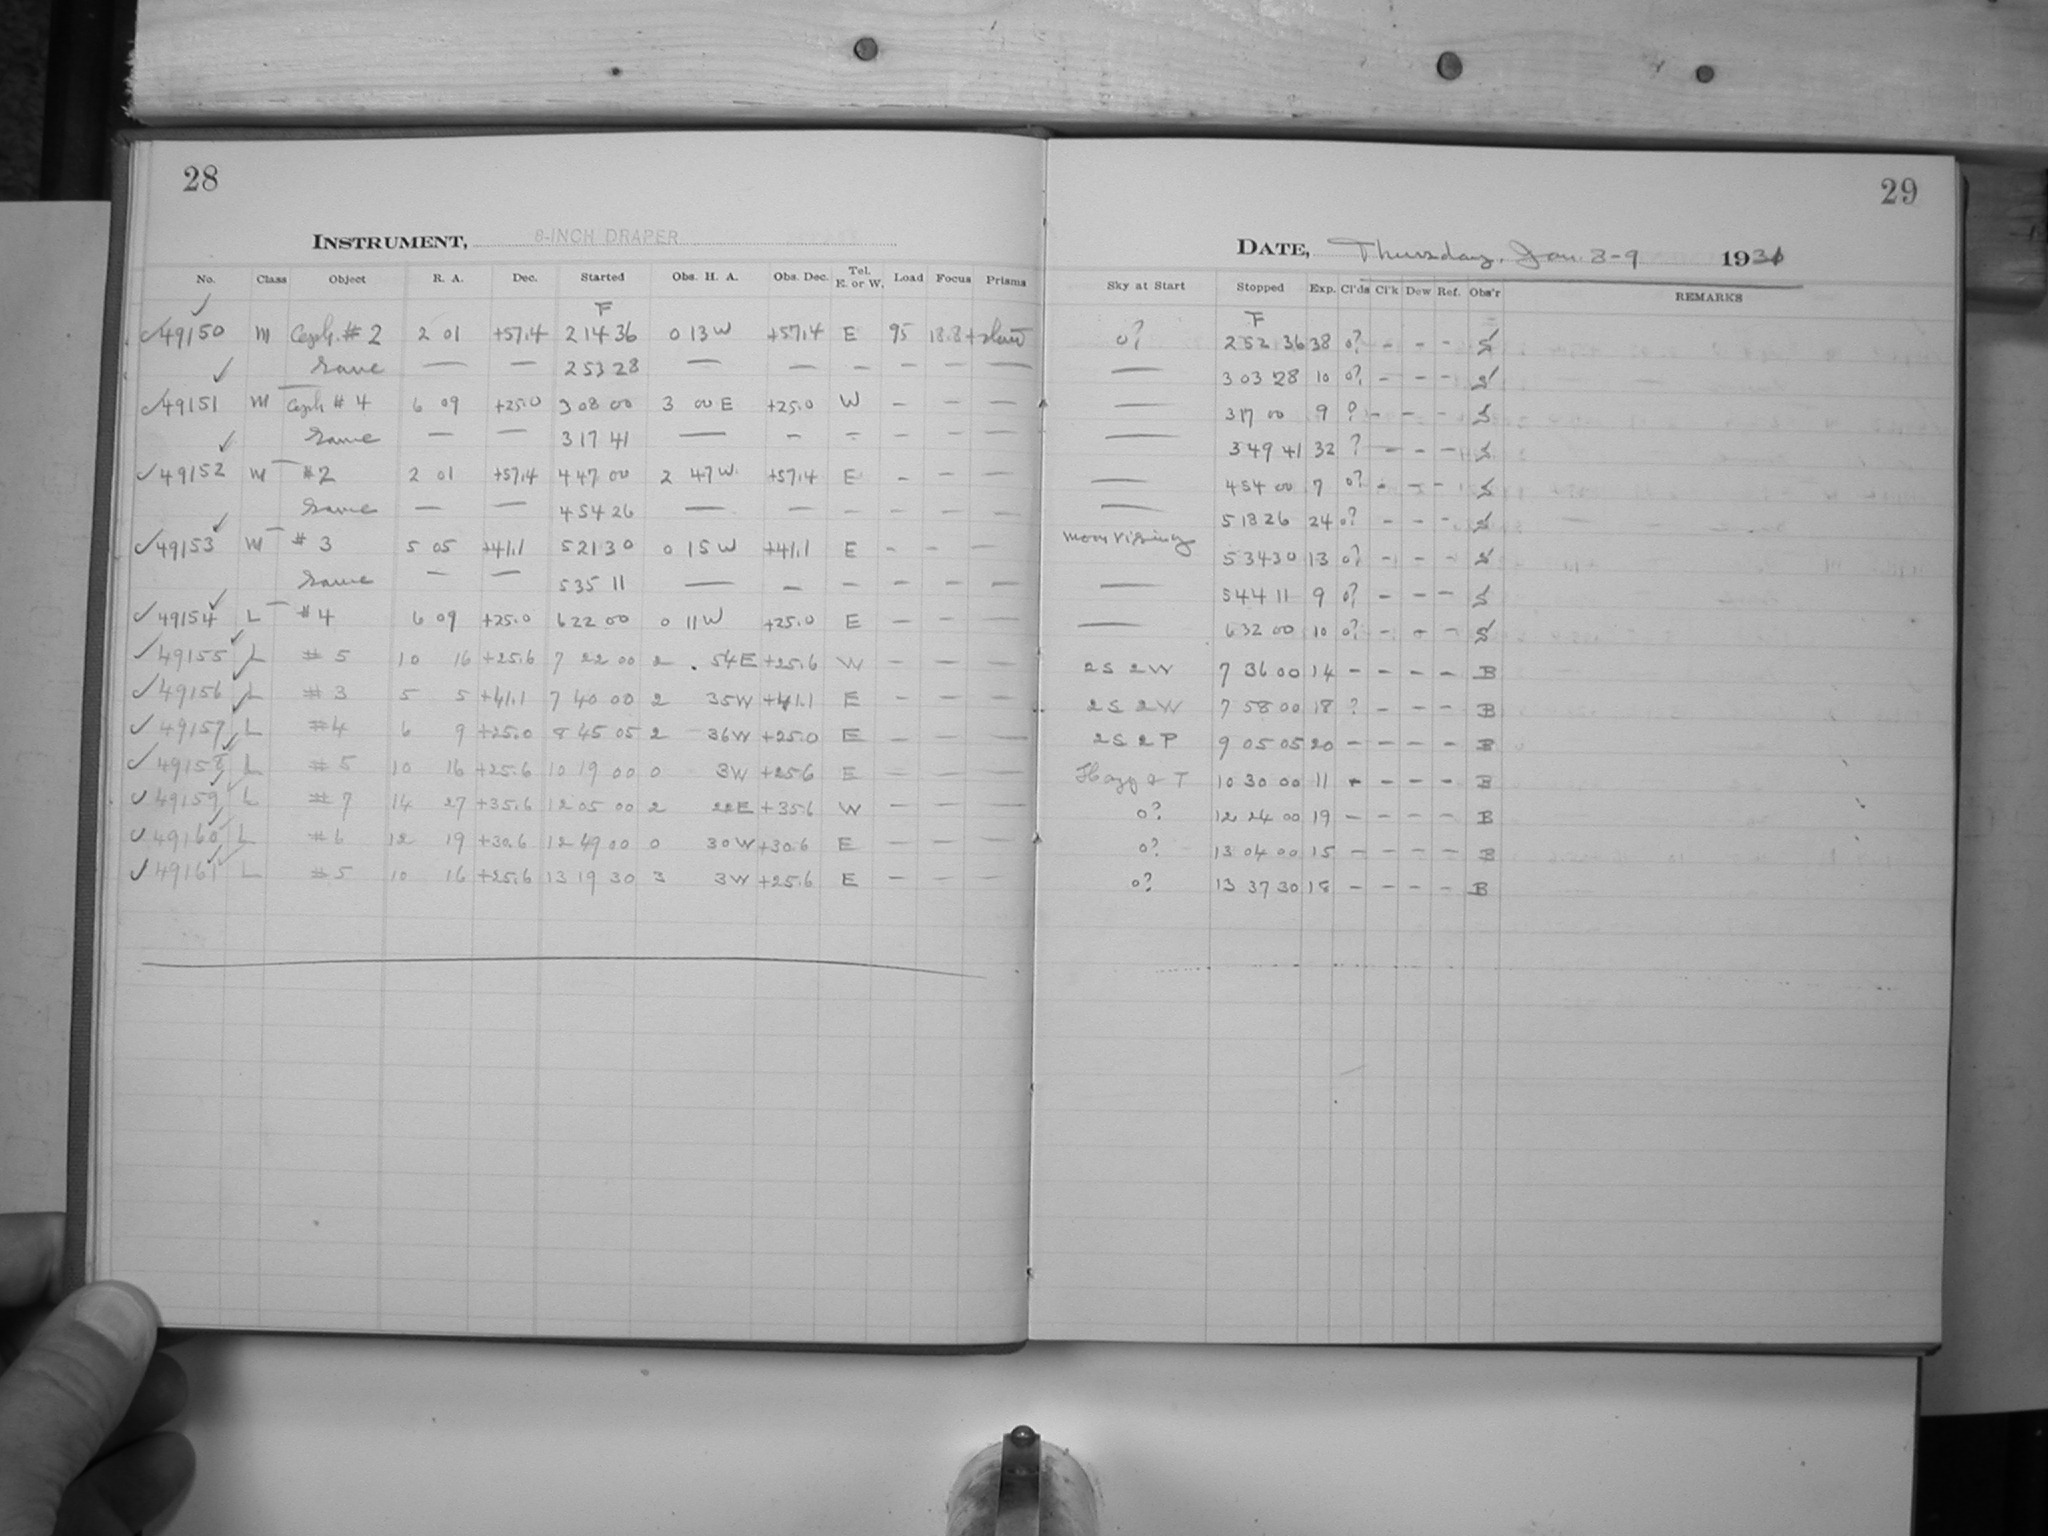 28
INSTRUMENT, 8-INCH DRAPER
No. Class Object R. A. Dec. Started Obs. H. A. Obs. Dec. Tel. E. or W. Load Focus Prisms
F
49150 M Ceph. # 2 2 01 +57.4 2 14 36 0 13 W +57.4 E 95 18.8+
Same — — 2 53 28 — — — — — —
49151 M Ceph # 4 6 09 +25.0 3 08 00 3 00 E +25.0 W — — —
Same — — 3 17 41 — — — — — —
49152 M #2 2 01 +57.4 4 47 00 2 47 W +57.4 E — — —
Same — — 4 54 26 — — — — — —
49153 M # 3 5 05 +41.1 5 21 30 0 15 W +41.1 E — — —
Same — — 5 35 11 — — — — — —
49154 L #4 6 09 +25.0 6 22 00 0 11 W +25.0 E — — —
49155 L # 5 10 16 +25.6 7 22 00 2 54 E +25.6 W — — —
49156 L # 3 5 5 +41.1 7 40 00 2 35 W +41.1 E — — —
49157 L #4 6 9 +25.0 8 45 05 2 36 W +25.0 E — — —
49158 L # 5 10 16 +25.6 10 19 00 0 3 W +25.6 E — — —
49159 L # 7 14 27 +35.6 12 05 00 2 22 E +35.6 W — — —
49160 L #6 12 19 +30.6 12 49 00 0 30 W +30.6 E — — —
49161 L #5 10 16 +25.6 13 19 30 3 3 W +25.6 E — — —
29
DATE, Thursday, Jan. 8-9 1931
Sky at Start Stopped Exp. Cl'ds Cl'k Dew Ref. Obs'r REMARKS
F
0? 2 52 36 38 0? — — — S
— 3 03 28 10 0? — — — S
— 3 17 00 9 ? — — — S
— 3 49 41 32 ? — — — S
— 4 54 00 7 0? — — — S
— 5 18 26 24 0? — — — S
Moon rising 5 34 30 13 0? — — — S
— 5 44 11 9 0? — — — S
— 6 32 00 10 0? — — — S
2 S 2 W 7 36 00 14 — — — — B
2 S 2 W 7 58 00 18 ? — — — B
2 S 2 P 9 05 05 20 — — — — B
Hazy & T 10 30 00 11 — — — — B
0? 12 24 00 19 — — — — B
0? 13 04 00 15 — — — — B
0? 13 37 30 18 — — — — B